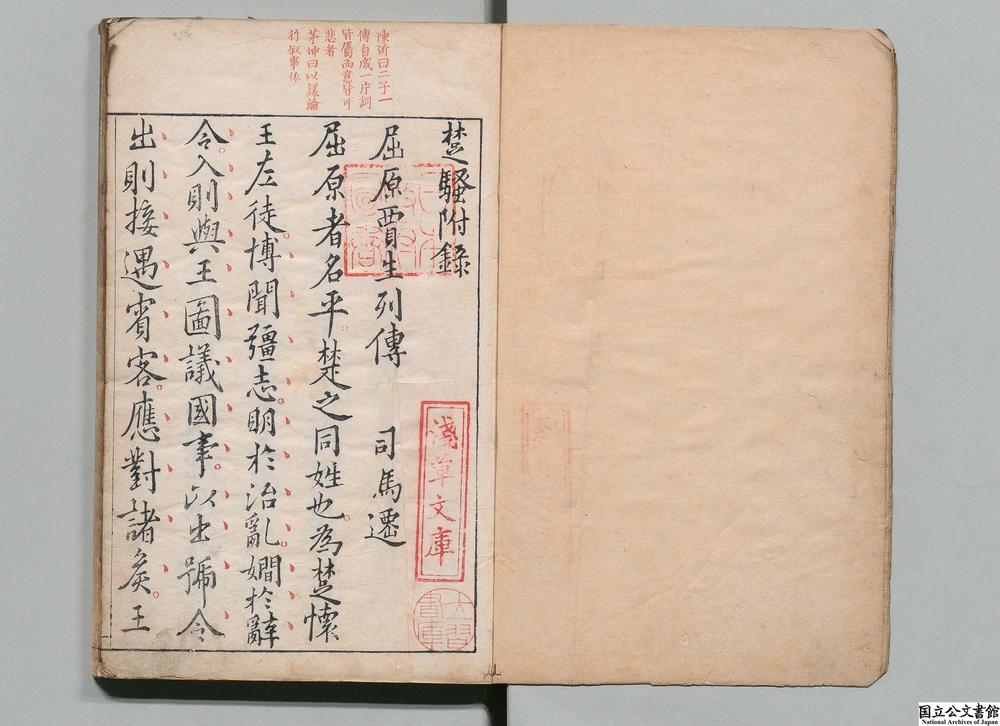 陳沂曰二子一
傳自成一片詞
皆屬而意猝可
悲者
茅坤曰以議論
行叙事体
楚騷附錄
屈原賈生列傳 司馬遷
屈原者名平楚之同姓也為楚懷
王左徒博聞彊志明於治亂嫺於辭
令入則與王圖議國事以出號令
出則接遇賓客應對諸矦王
淺草文庫
國立公文書館
National Archives of Japan